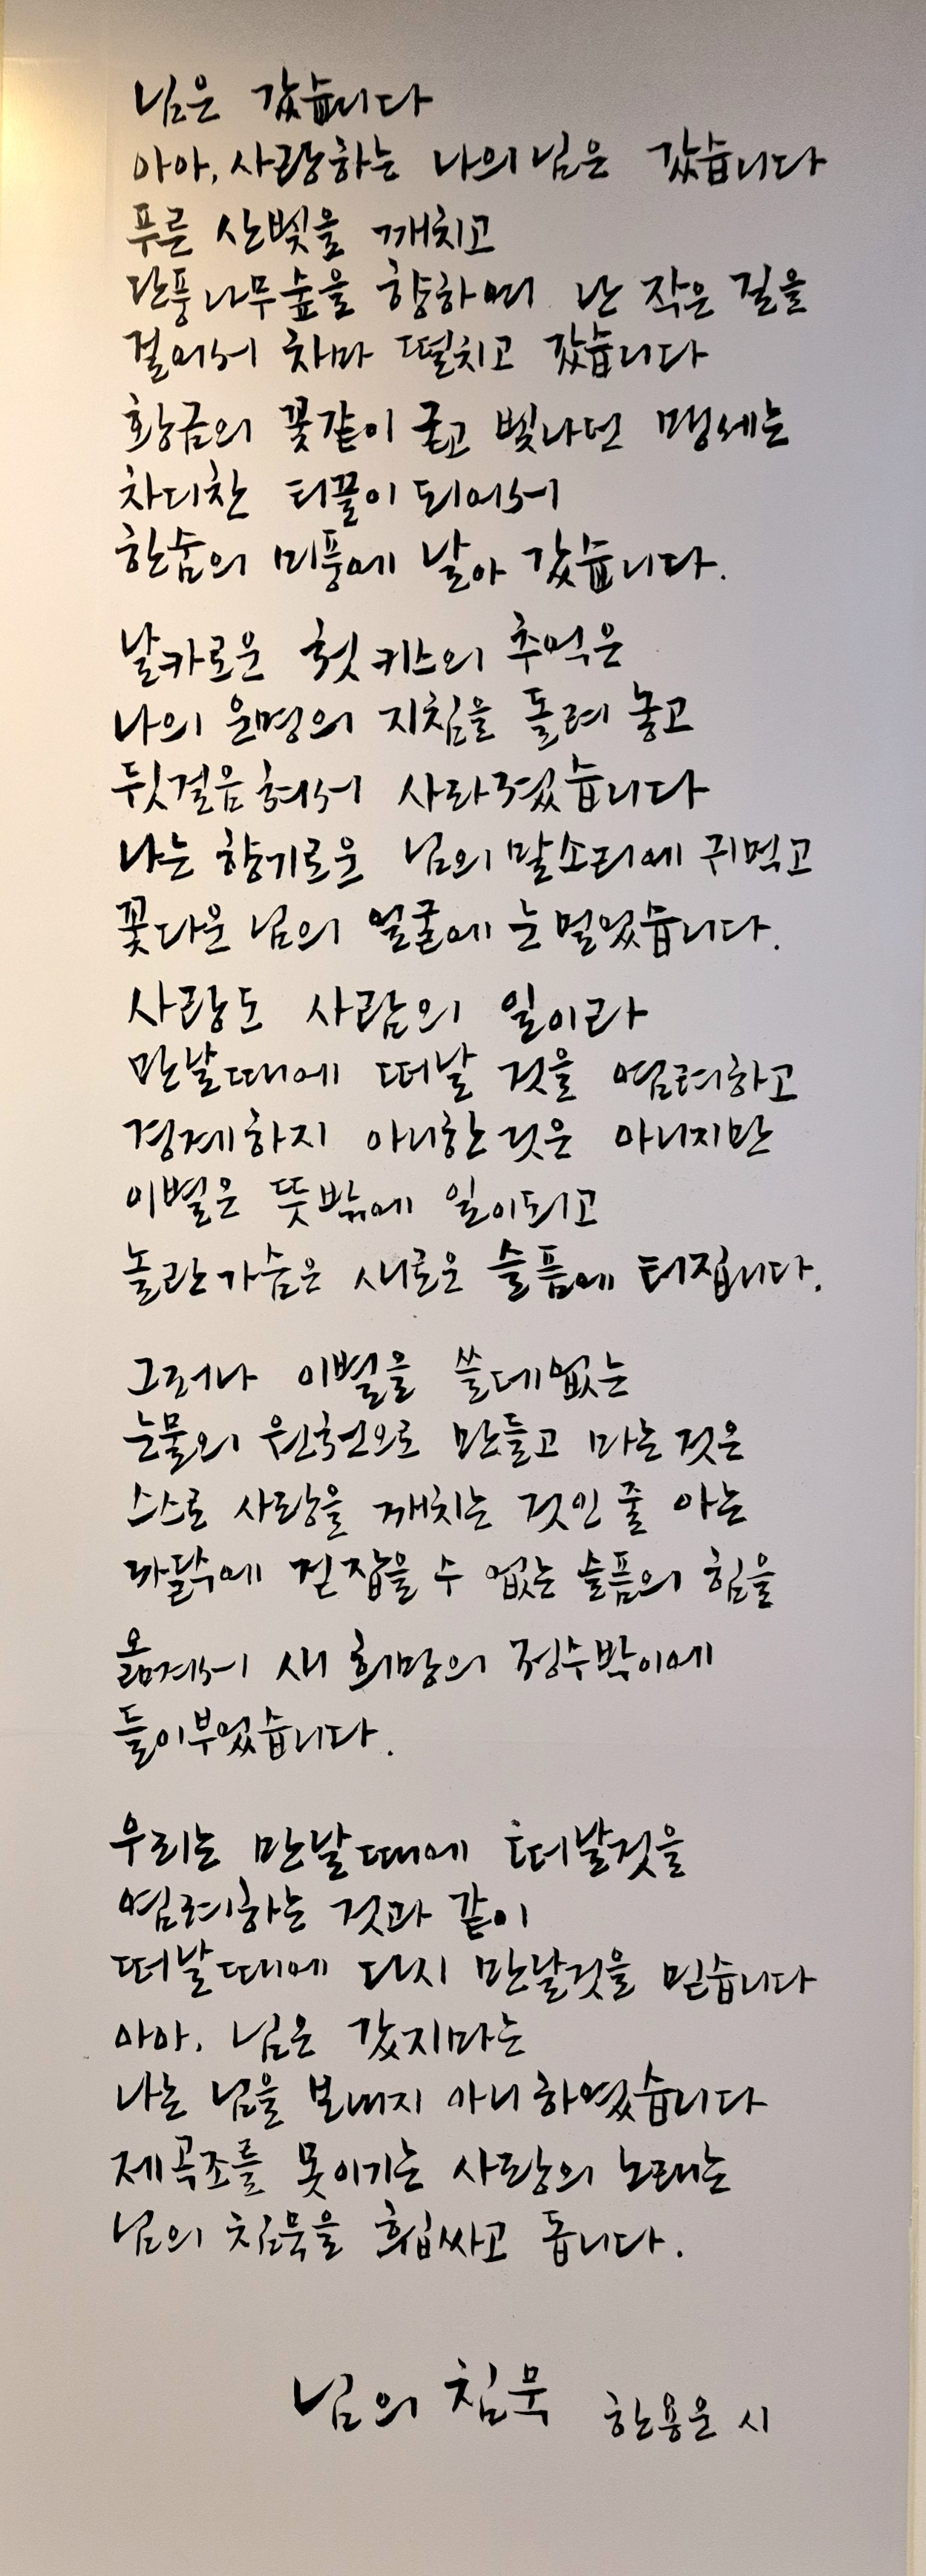 님은 갔습니다
아아, 사랑하는 나의 님은 갔습니다
푸른 산빛을 깨치고
단풍나무숲을 향하여 난 작은 길을
걸어서 차마 떨치고 갔습니다
황금의 꽃같이 굳고 빛나던 맹세는
차디찬 티끌이 되어서
한숨의 미풍에 날아 갔습니다.
날카로운 첫 키스의 추억은
나의 운명의 지침을 돌려 놓고
뒷걸음쳐서 사라졌습니다
나는 향기로운 님의 말소리에 귀먹고
꽃다운 님의 얼굴에 눈 멀었습니다.
사랑도 사람의 일이라
만날 때에 떠날 것을 염려하고
경계하지 아니한 것은 아니지만
이별은 뜻밖에 일이되고
놀란 가슴은 새로운 슬픔에 터집니다.
그러나 이별을 쓸데없는
눈물의 원천으로 만들고 마는 것은
스스로 사랑을 깨치는 것인 줄 아는
까닭에 걷잡을 수 없는 슬픔의 힘을
옮겨서 새 희망의 정수박이에
들이부었습니다.
우리는 만날 때에 떠날것을
염려하는 것과 같이
떠날 때에 다시 만날것을 믿습니다
아아, 님은 갔지마는
나는 님을 보내지 아니 하였습니다
제곡조를 못이기는 사랑의 노래는
님의 침묵을 휩싸고 돕니다.
님의 침묵 한용운 시